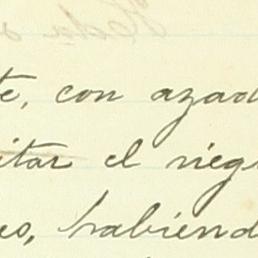 te, con azad
itar el negr
es, habiend